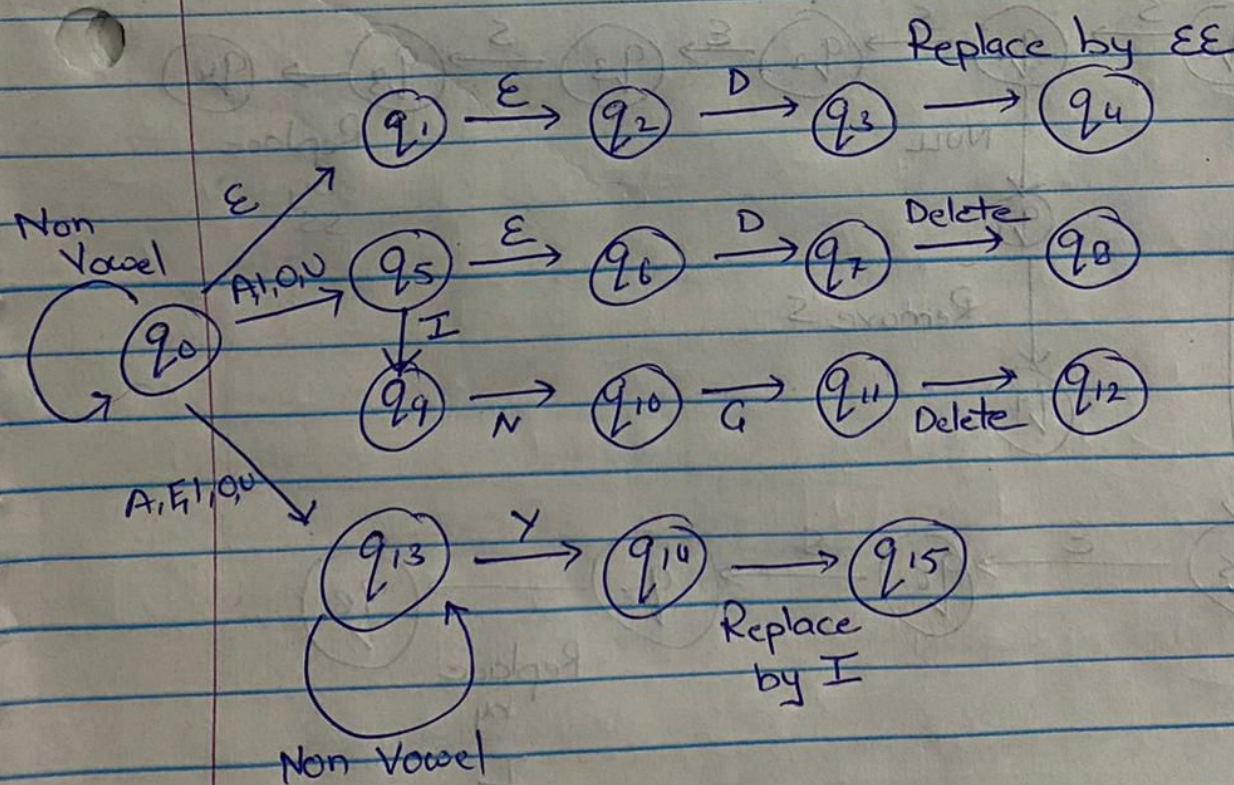 Replace by ƐƐ
q1 Ɛ q2 D q3 q4
Ɛ
Non
Vowel
q5 Ɛ q6 D q7 Delete q8
A,I,O,U
I
q0
q9 N q10 G q11 Delete q12
A,E,I,O,U
q13 Y q14 q15
Replace
by I
Non Vowel